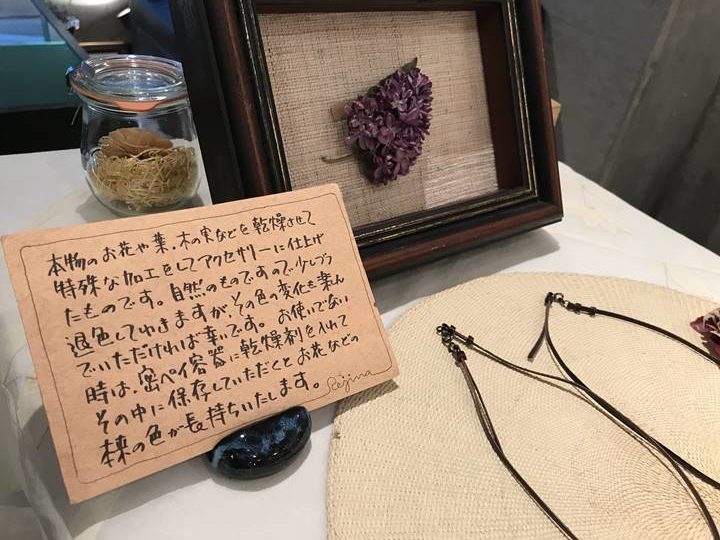 本物のお花や葉、木の実などを乾燥させて
特殊な加工をしてアクセサリーに仕上げ
たものです。自然のものですので少しづつ
退色していきますが、その色の変化も楽しん
でいただければ幸いです。お使いでない
時は、密ペイ容器に乾燥剤を入れて
その中に保存していただくとお花などの
本来の色が長持ちいたします。
Réjina